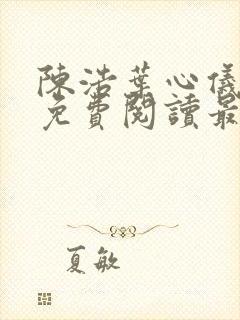 陳浩葉心儀
免費閱讀最
夏敏